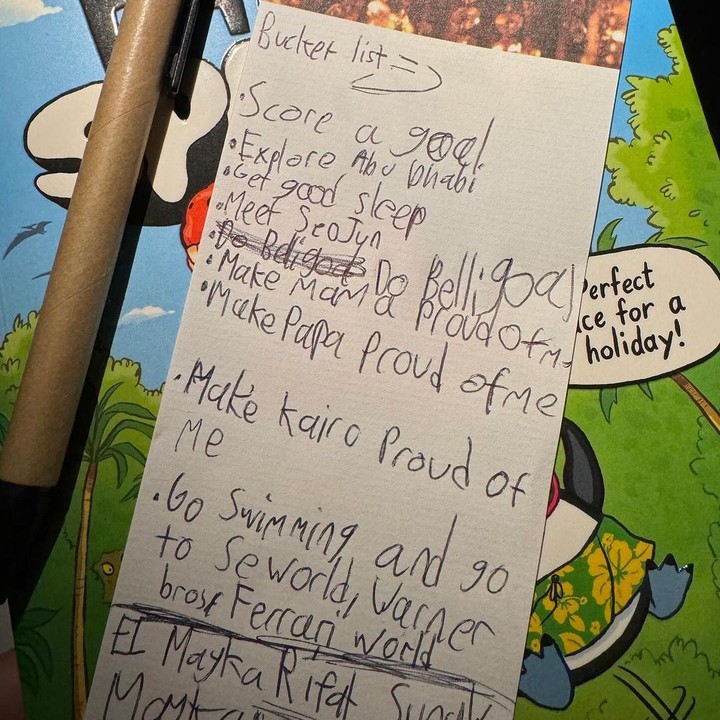 Bucket list =
• Score a goal
• Explore Abu Dhabi
• Get good sleep
• Meet SeoJyn
• Do Belligoal Do Belligoal
• Make Mama Proud of me
• Make Papa Proud of Me
• Make Kairo Proud of
Me
• Go Swimming and go
to Seworld, Warner
brosf Ferrari World
El Mayka Rifat
Perfect
ce for a
holiday!